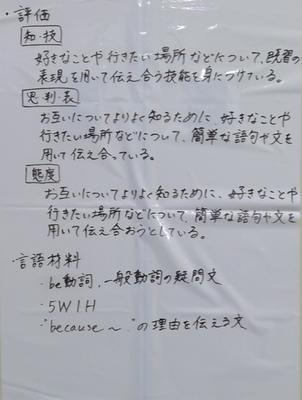 ・評価
知・技
好きなことや行きたい場所などについて、既習の
表現を用いて伝え合う技能を身につけている。
思・判・表
お互いについてよりよく知るために、好きなことや
行きたい場所などについて、簡単な語句や文を
用いて伝え合っている。
態度
お互いについてよりよく知るために、好きなことや
行きたい場所などについて、簡単な語句や文を
用いて伝え合おうとしている。
・言語材料
・be動詞、一般動詞の疑問文
・5W1H
・"because ～."の理由を伝える文